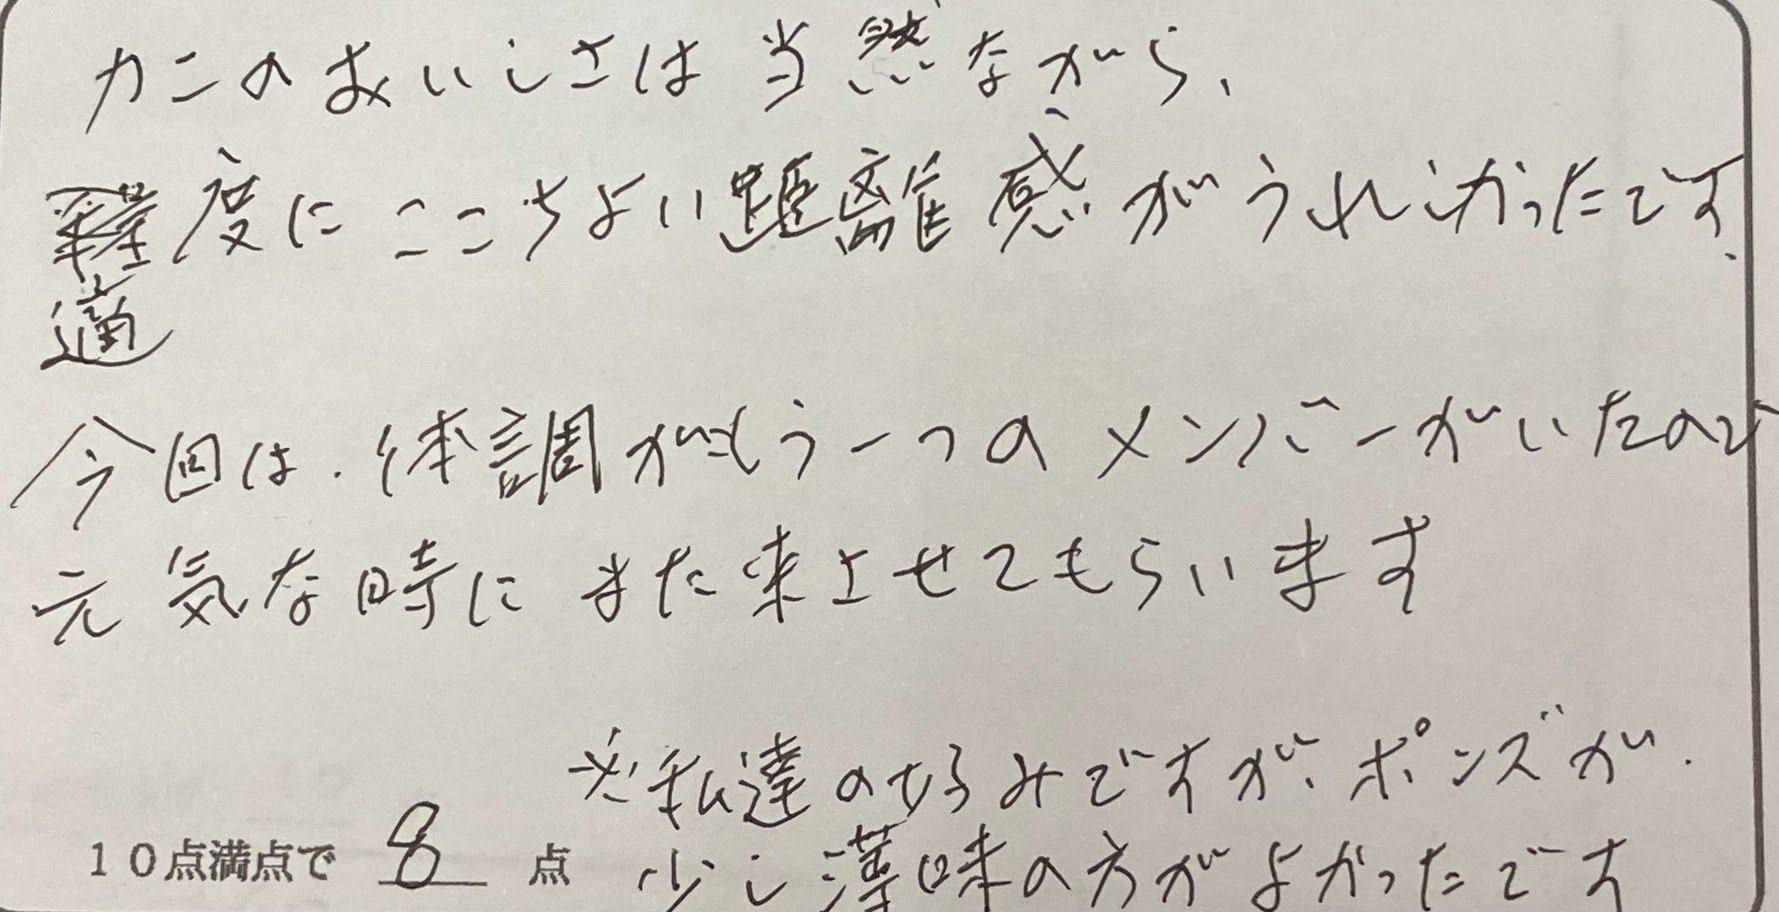 カニのおいしさは当然ながら、
度にここちよい距離感がうれしかったです。
適
今回は、体調がもう一つのメンバーがいたので
元気な時にまた来させてもらいます
※私達の好みですが、ポンズが、
10点満点で 8 点 少し薄味の方がよかったです